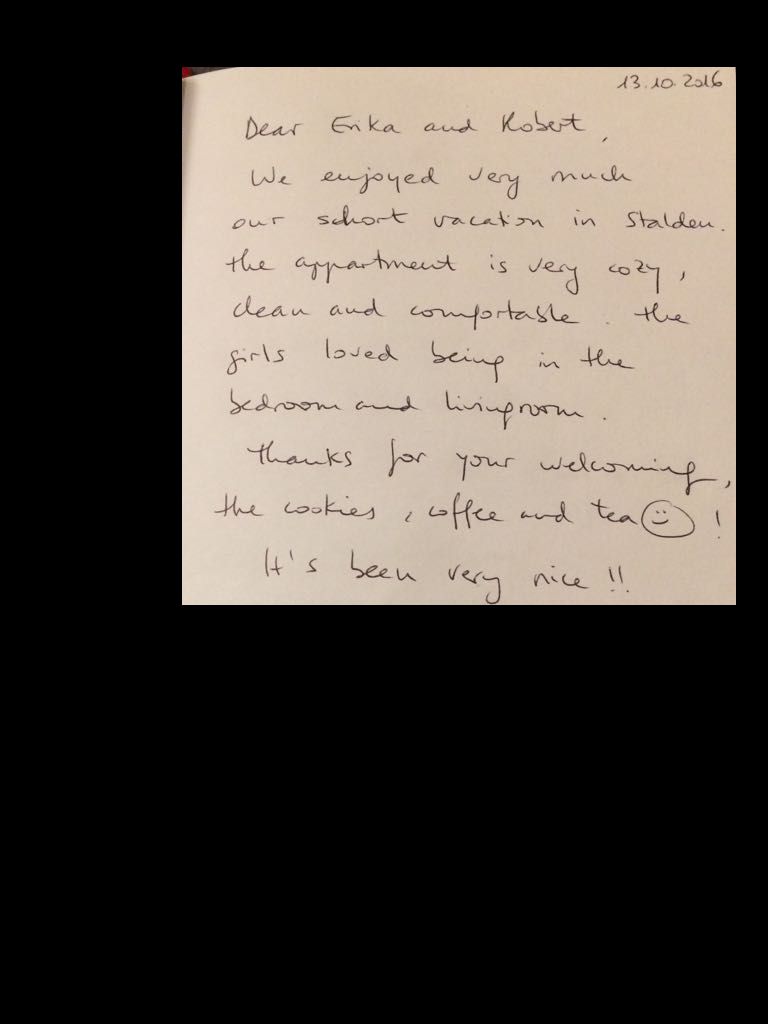 13.10.2016
Dear Erika and Robert,
We enjoyed very much
our schort vacation in Stalden.
the appartment is very cozy,
clean and comfortable. the
girls loved being in the
bedroom and livingroom.
thanks for your welcoming,
the cookies, coffee and tea ☺ !
It's been very nice !!